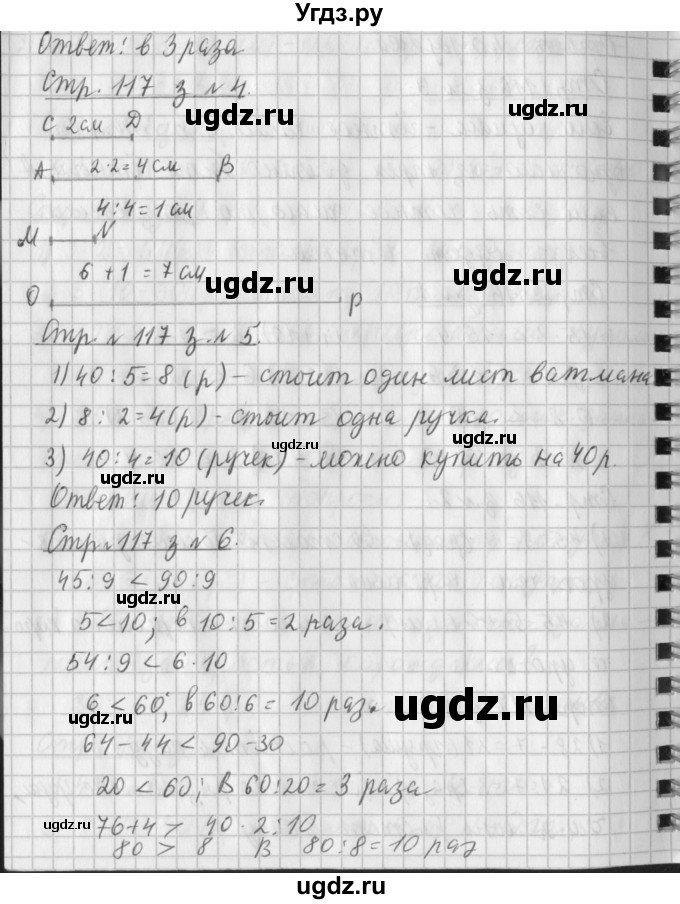 Угдз.ру
Ответ: в 3 раза
Стр. 117 з № 4.
ugdz.ru
C 2см D
A 2·2=4см B
4:4=1см
M N
6+1=7см
ugdz.ru
ugdz.ru
O P
Стр № 117 з. № 5.
1) 40:5=8(р) - стоит один лист ватмана
2) 8:2=4(р) - стоит одна ручка.
ugdz.ru
3) 40:4=10 (ручек) - можно купить на 40р.
Ответ: 10 ручек.
ugdz.ru
Стр № 117 з № 6.
45:9 < 90:9
ugdz.ru
5<10; в 10:5=2 раза.
54:9 < 6·10
6<60; в 60:6= 10 раз.
ugdz.ru
ugdz.ru
64-44 < 90-30
20 < 60; В 60:20=3 раза
ugdz.ru
ugdz.ru
76+4 > 40·2:10
80 > 8 В 80:8=10 раз
ugdz.ru